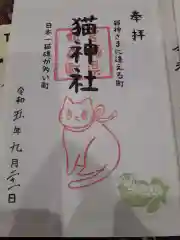 奉拝
猫神さまに逢える町
猫神社
日本一猫碑が多い町
令和五年九月二十二日